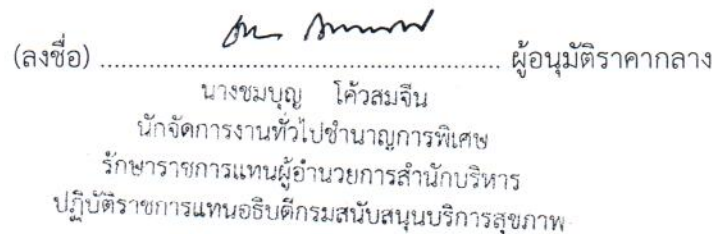 (ลงชื่อ) ........................................................ ผู้อนุมัติราคากลาง
นางชมบุญ โค้วสมจีน
นักจัดการงานทั่วไปชำนาญการพิเศษ
รักษาราชการแทนผู้อำนวยการสำนักบริหาร
ปฏิบัติราชการแทนอธิบดีกรมสนับสนุนบริการสุขภาพ